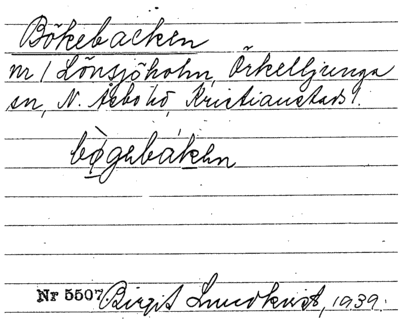 Bökebacken
m/ Lönsjöholm, Örkelljunga
sn, N. Åsbo hd, Kristianstads l.
bø̀gebákɛn
Nr 5507 Birgit Lundkvist, 1939.